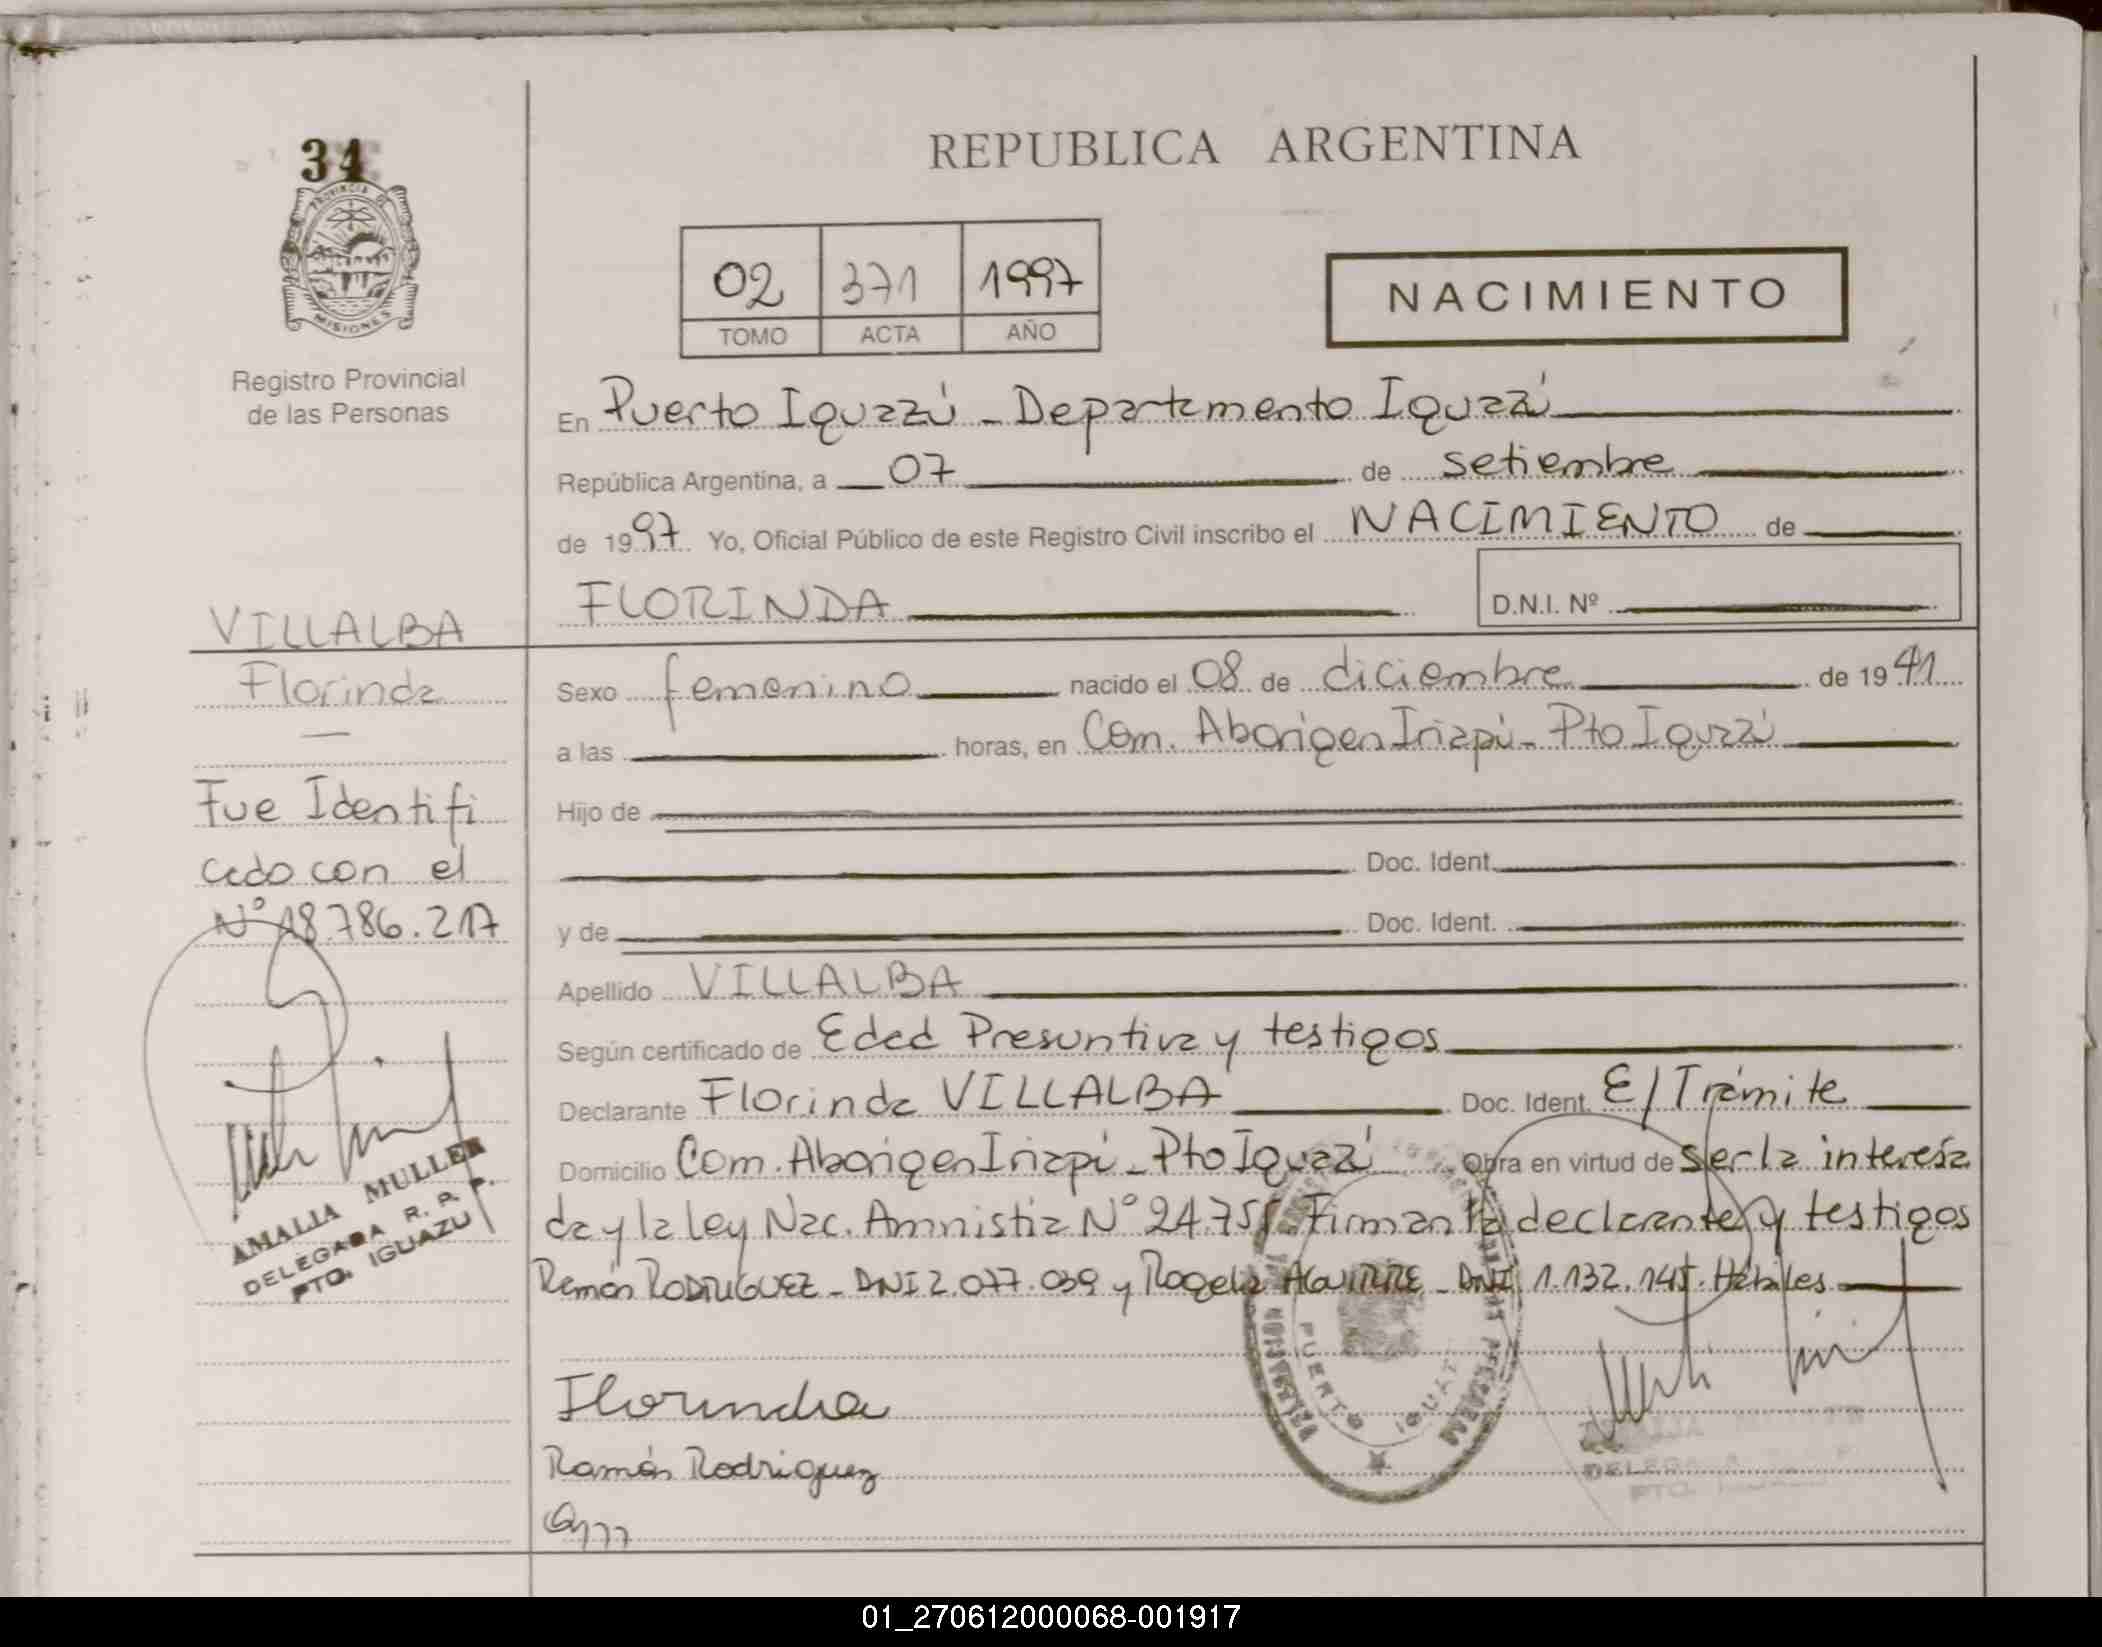 34
PROVINCIA DE
MISIONES
Registro Provincial
de las Personas
VILLALBA
Florinda
—
Fue Identifi
cado con el
N° 18.786.217
AMALIA MULLER
DELEGADA R. P. P.
PTO. IGUAZU
REPUBLICA ARGENTINA
02 371 1997
TOMO ACTA AÑO
NACIMIENTO
En Puerto Iguazú - Departamento Iguazú
República Argentina, a 07 de setiembre
de 1997 Yo, Oficial Público de este Registro Civil inscribo el NACIMIENTO de
FLORINDA D.N.I. Nº
Sexo femenino nacido el 08 de diciembre de 1941
a las horas, en Com. Aborigen Iriapú - Pto Iguazú
Hijo de
Doc. Ident.
y de Doc. Ident.
Apellido VILLALBA
Según certificado de Edad Presuntiva y testigos
Declarante Florinda VILLALBA Doc. Ident. E/Trámite
Domicilio Com. Aborigen Iriapú - Pto Iguazú Obra en virtud de ser la interesa
da y la ley Nac. Amnistia N° 24.755. Firman la declarante y testigos
Ramón RODRIGUEZ - DNI 2.077.039 y Rogelia AGUIRRE - DNI 1.132.145. Hábiles.
Florinda
Ramón Rodriguez
PUERTO IGUAZU
DELEGA
PTO.
01_270612000068-001917